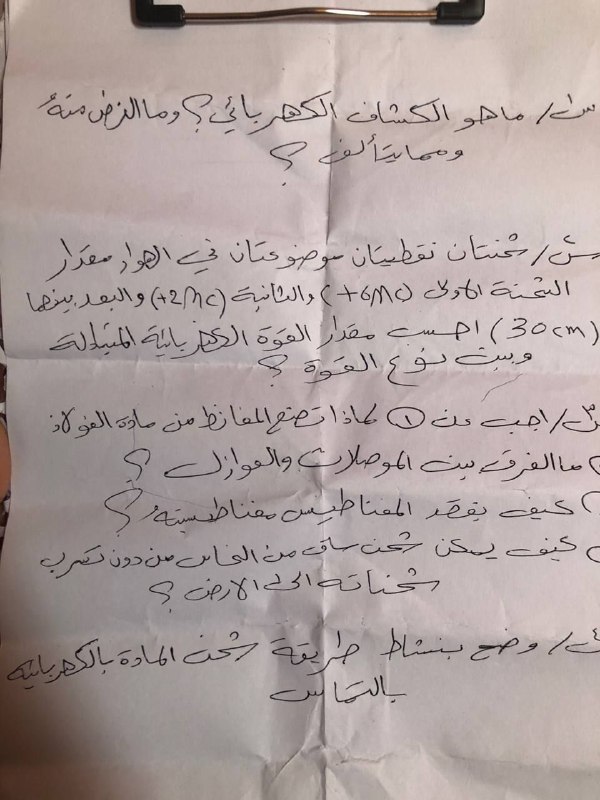 س١/ ما هو الكشاف الكهربائي؟ وما الغرض منهُ
ومما يتألف ؟
س٢/ شحنتان نقطيتان موضوعتان في الهواء مقدار
الشحنة الاولى (+6Mc) والثانية (+2Mc) والبعد بينهما
(30cm) احسب مقدار القوة الكهربائية المتبادلة
وبين نوع القوة ؟
س٣/ اجب عن ① لماذا تصنع المغانط من مادة الفولاذ
ما الفرق بين الموصلات والعوازل ؟
كيف يفقد المغناطيس مغناطيسيتهُ ؟
كيف يمكن شحن ساق من النحاس من دون تسرب
شحناته الى الارض ؟
وضح بنشاط طريقة شحن المادة بالكهربائية
بالتماس